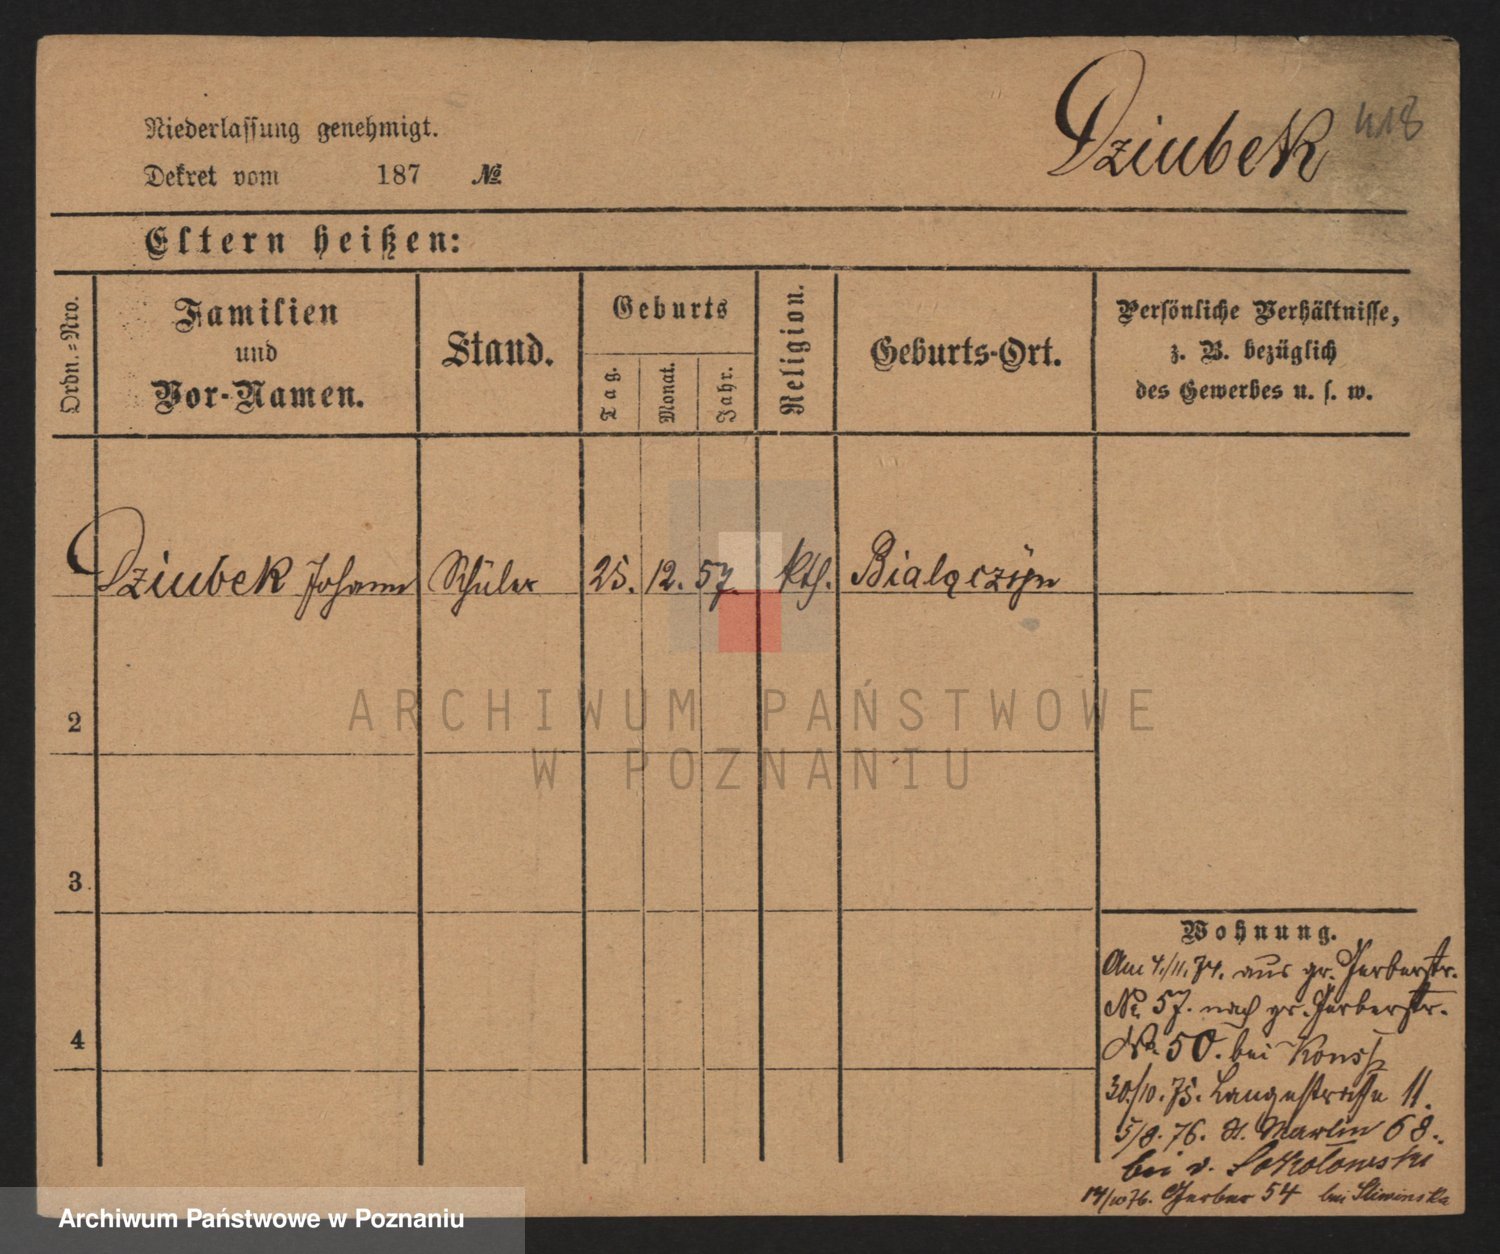 Niederlassung genehmigt.
Dekret vom 187 №
Dziubek 418
Eltern heißen:
Ordn.=Nro.
Familien
und
Vor-Namen.
Stand.
Geburts
Tag.
Monat.
Jahr.
Religion.
Geburts-Ort.
Persönliche Verhältnisse,
z. B. bezüglich
des Gewerbes u. s. w.
Dziubek Johann Schüler 25. 12. 57. kth. Bialęczÿn
2
3
4
Wohnung.
Am 4./11. 74. aus gr. Gerberstr.
№ 57. nach gr. Gerberstr.
№ 50. bei
30./10. 75. Langestraße 11.
5/8. 76. St. Martin 68.
bei v. Sokolowski
14/10 76. Gerber 54 bei Sliwinska
ARCHIWUM PAŃSTWOWE
W POZNANIU
Archiwum Państwowe w Poznaniu